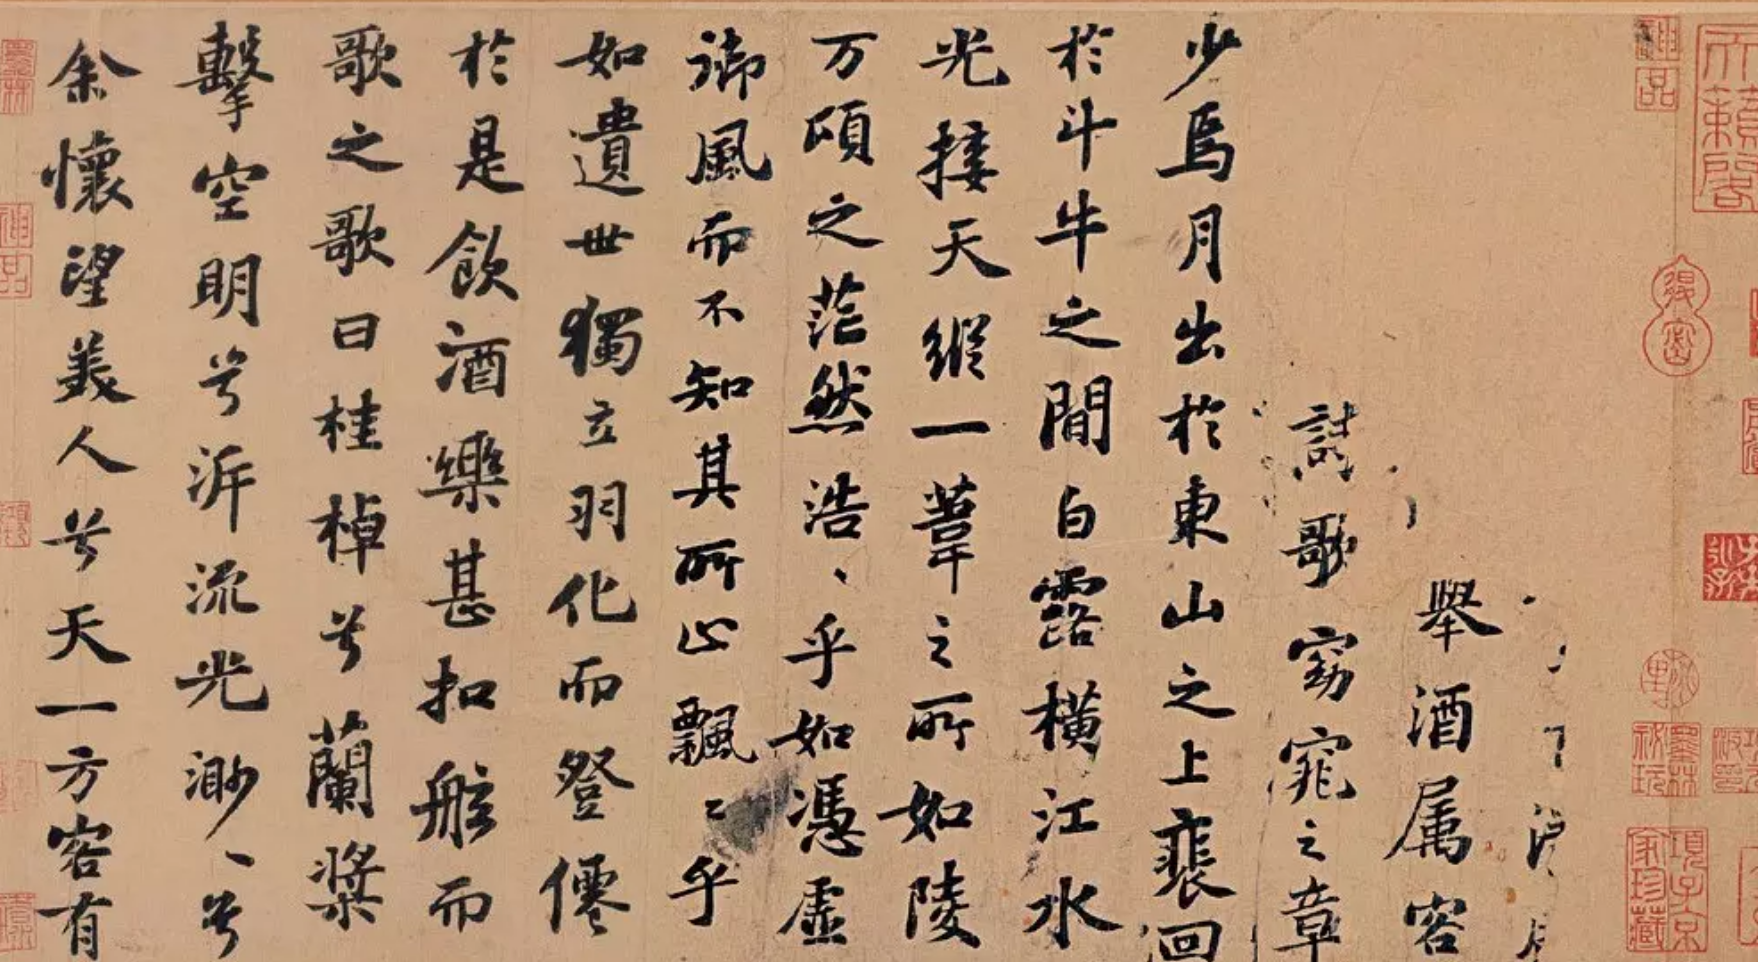 舉酒属客
誦歌窈窕之章
少焉月出於東山之上裴回
於斗牛之間白露橫江水
光接天縱一葦之所如陵
万頃之茫然浩、乎如馮虛
御風而不知其所止飄〻乎
如遺世獨立羽化而登僊
於是飲酒樂甚扣舷而
歌之歌曰桂棹兮蘭槳
擊空明兮泝流光渺、兮
余懷望美人兮天一方客有